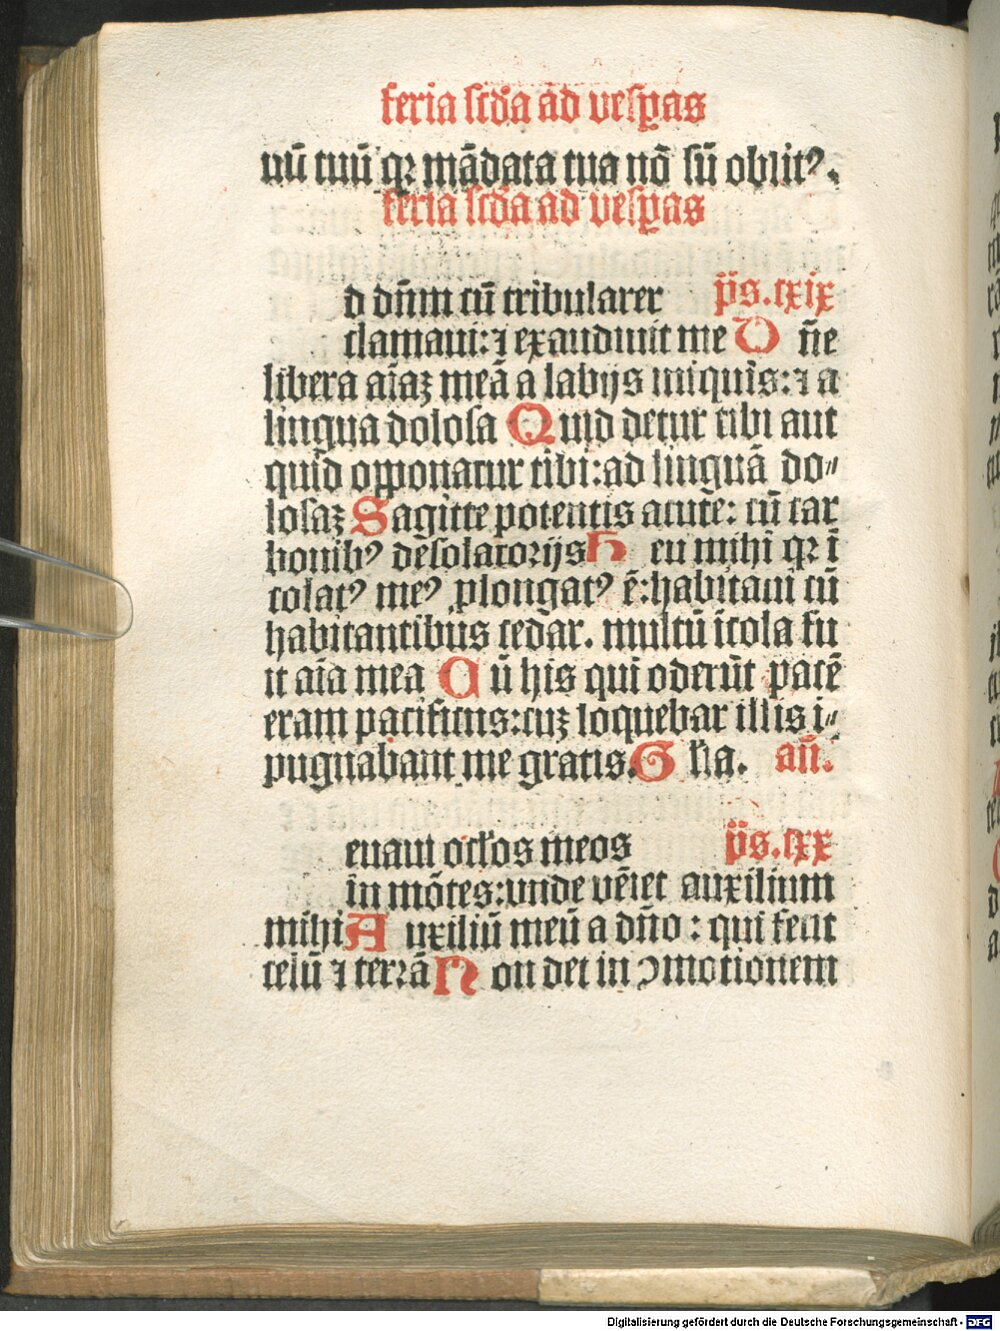 feria scd̄a ad vesꝑas
uū tuū qꝛ mādata tua nō sū oblitꝰ.
feria scd̄a ad vesꝑas
d dn̄m cū tribularer p̄s.cxix
clamaui: ⁊ exaudiuit me D n̄e
libera aīaꝫ meā a labijs iniquis: ⁊ a
lingua dolosa Quid detur tibi aut
quid opponatur tibi: ad linguā do⸗
losaꝫ Sagitte potentis acute: cū car
bonibꝰ desolatorijs H eu mihi qꝛ ī
colatꝰ meꝰ ꝓlongatꝰ ē: habitaui cū
habitantibus cedar. multū īcola fu
it aīa mea Cū his qui oderūt pacē
eram pacificus: cuꝫ loquebar illis i⸗
pugnabant me gratis. G līa. an̄.
euaui oclos meos p̄s.cxx
in mōtes: vnde vēiet auxilium
mihi Auxiliū meū a dn̄o: qui fecit
celū ⁊ terrā Non det in ↄmotionem
Digitalisierung gefördert durch die Deutsche Forschungsgemeinschaft - DFG